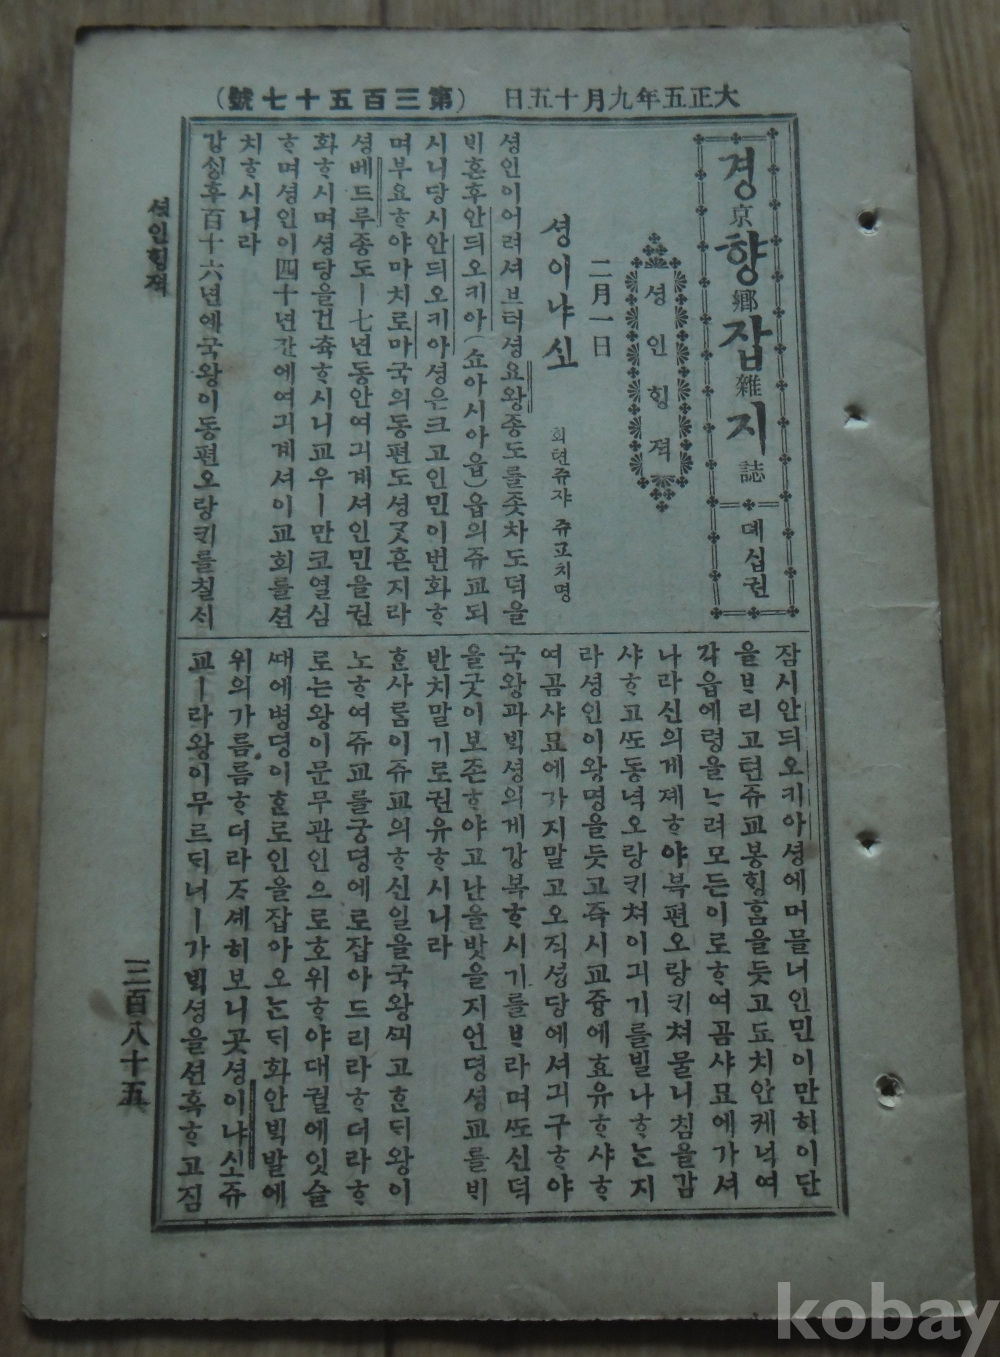 大正五年九月十五日
(第三百五十七號)
경京향鄕잡雜지誌
뎨십권
셩인ᄒᆡᆼ젹
二月一日
셩이냐시오
회텬쥬쟈 쥬교치명
셩인이어려셔브터셩요왕종도를좃차도덕을
ᄇᆡ혼후안듸오키아(쇼아시아읍)읍의쥬교되
시니당시안듸오키아셩은크고인민이번화ᄒᆞ
며부요ᄒᆞ야마치로마국의동편도셩ᄀᆺ흔지라
셩베드루종도ㅣ七년동안여긔계셔인민을권
화ᄒᆞ시며셩당을건축ᄒᆞ시니교우ㅣ만코열심
ᄒᆞ며셩인이四十년간에여긔계셔이교회를션
치ᄒᆞ시니라
강ᄉᆡᆼ후百十六년에국왕이동편오랑키를칠ᄉᆡ
잠시안듸오키아셩에머믈너인민이만히이단
을ᄇᆞ리고텬쥬교봉ᄒᆡᆼ홈을듯고됴치안케녁여
각읍에령을ᄂᆞ려모든이로ᄒᆞ여곰샤묘에가셔
나라신의게졔ᄒᆞ야북편오랑키쳐물니침을감
샤ᄒᆞ고ᄯᅩ동녁오랑키쳐이긔기를빌나ᄒᆞᄂᆞᆫ지
라셩인이왕명을듯고즉시교즁에효유ᄒᆞ샤ᄒᆞ
여곰샤묘에가지말고오직셩당에셔긔구ᄒᆞ야
국왕과ᄇᆡᆨ셩의게강복ᄒᆞ시기를ᄇᆞ라며ᄯᅩ신덕
을굿이보존ᄒᆞ야고난을밧을지언뎡셩교를ᄇᆡ
반치말기로권유ᄒᆞ시니라
ᄒᆞᆫ사ᄅᆞᆷ이쥬교의ᄒᆞ신일을국왕ᄭᅴ고ᄒᆞᆫᄃᆡ왕이
노ᄒᆞ여쥬교를궁뎡에로잡아드리라ᄒᆞ더라ᄒᆞ
로ᄂᆞᆫ왕이문무관인으로호위ᄒᆞ야대궐에잇슬
ᄯᅢ에병뎡이ᄒᆞᆫ로인을잡아오ᄂᆞᆫᄃᆡ화안ᄇᆡᆨ발에
위의가름름ᄒᆞ더라ᄌᆞ셰히보니곳셩이냐시오쥬
교ㅣ라왕이무르ᄃᆡ너ㅣ가ᄇᆡᆨ셩을션혹ᄒᆞ고짐
셩인ᄒᆡᆼ젹
三百八十五
kobay